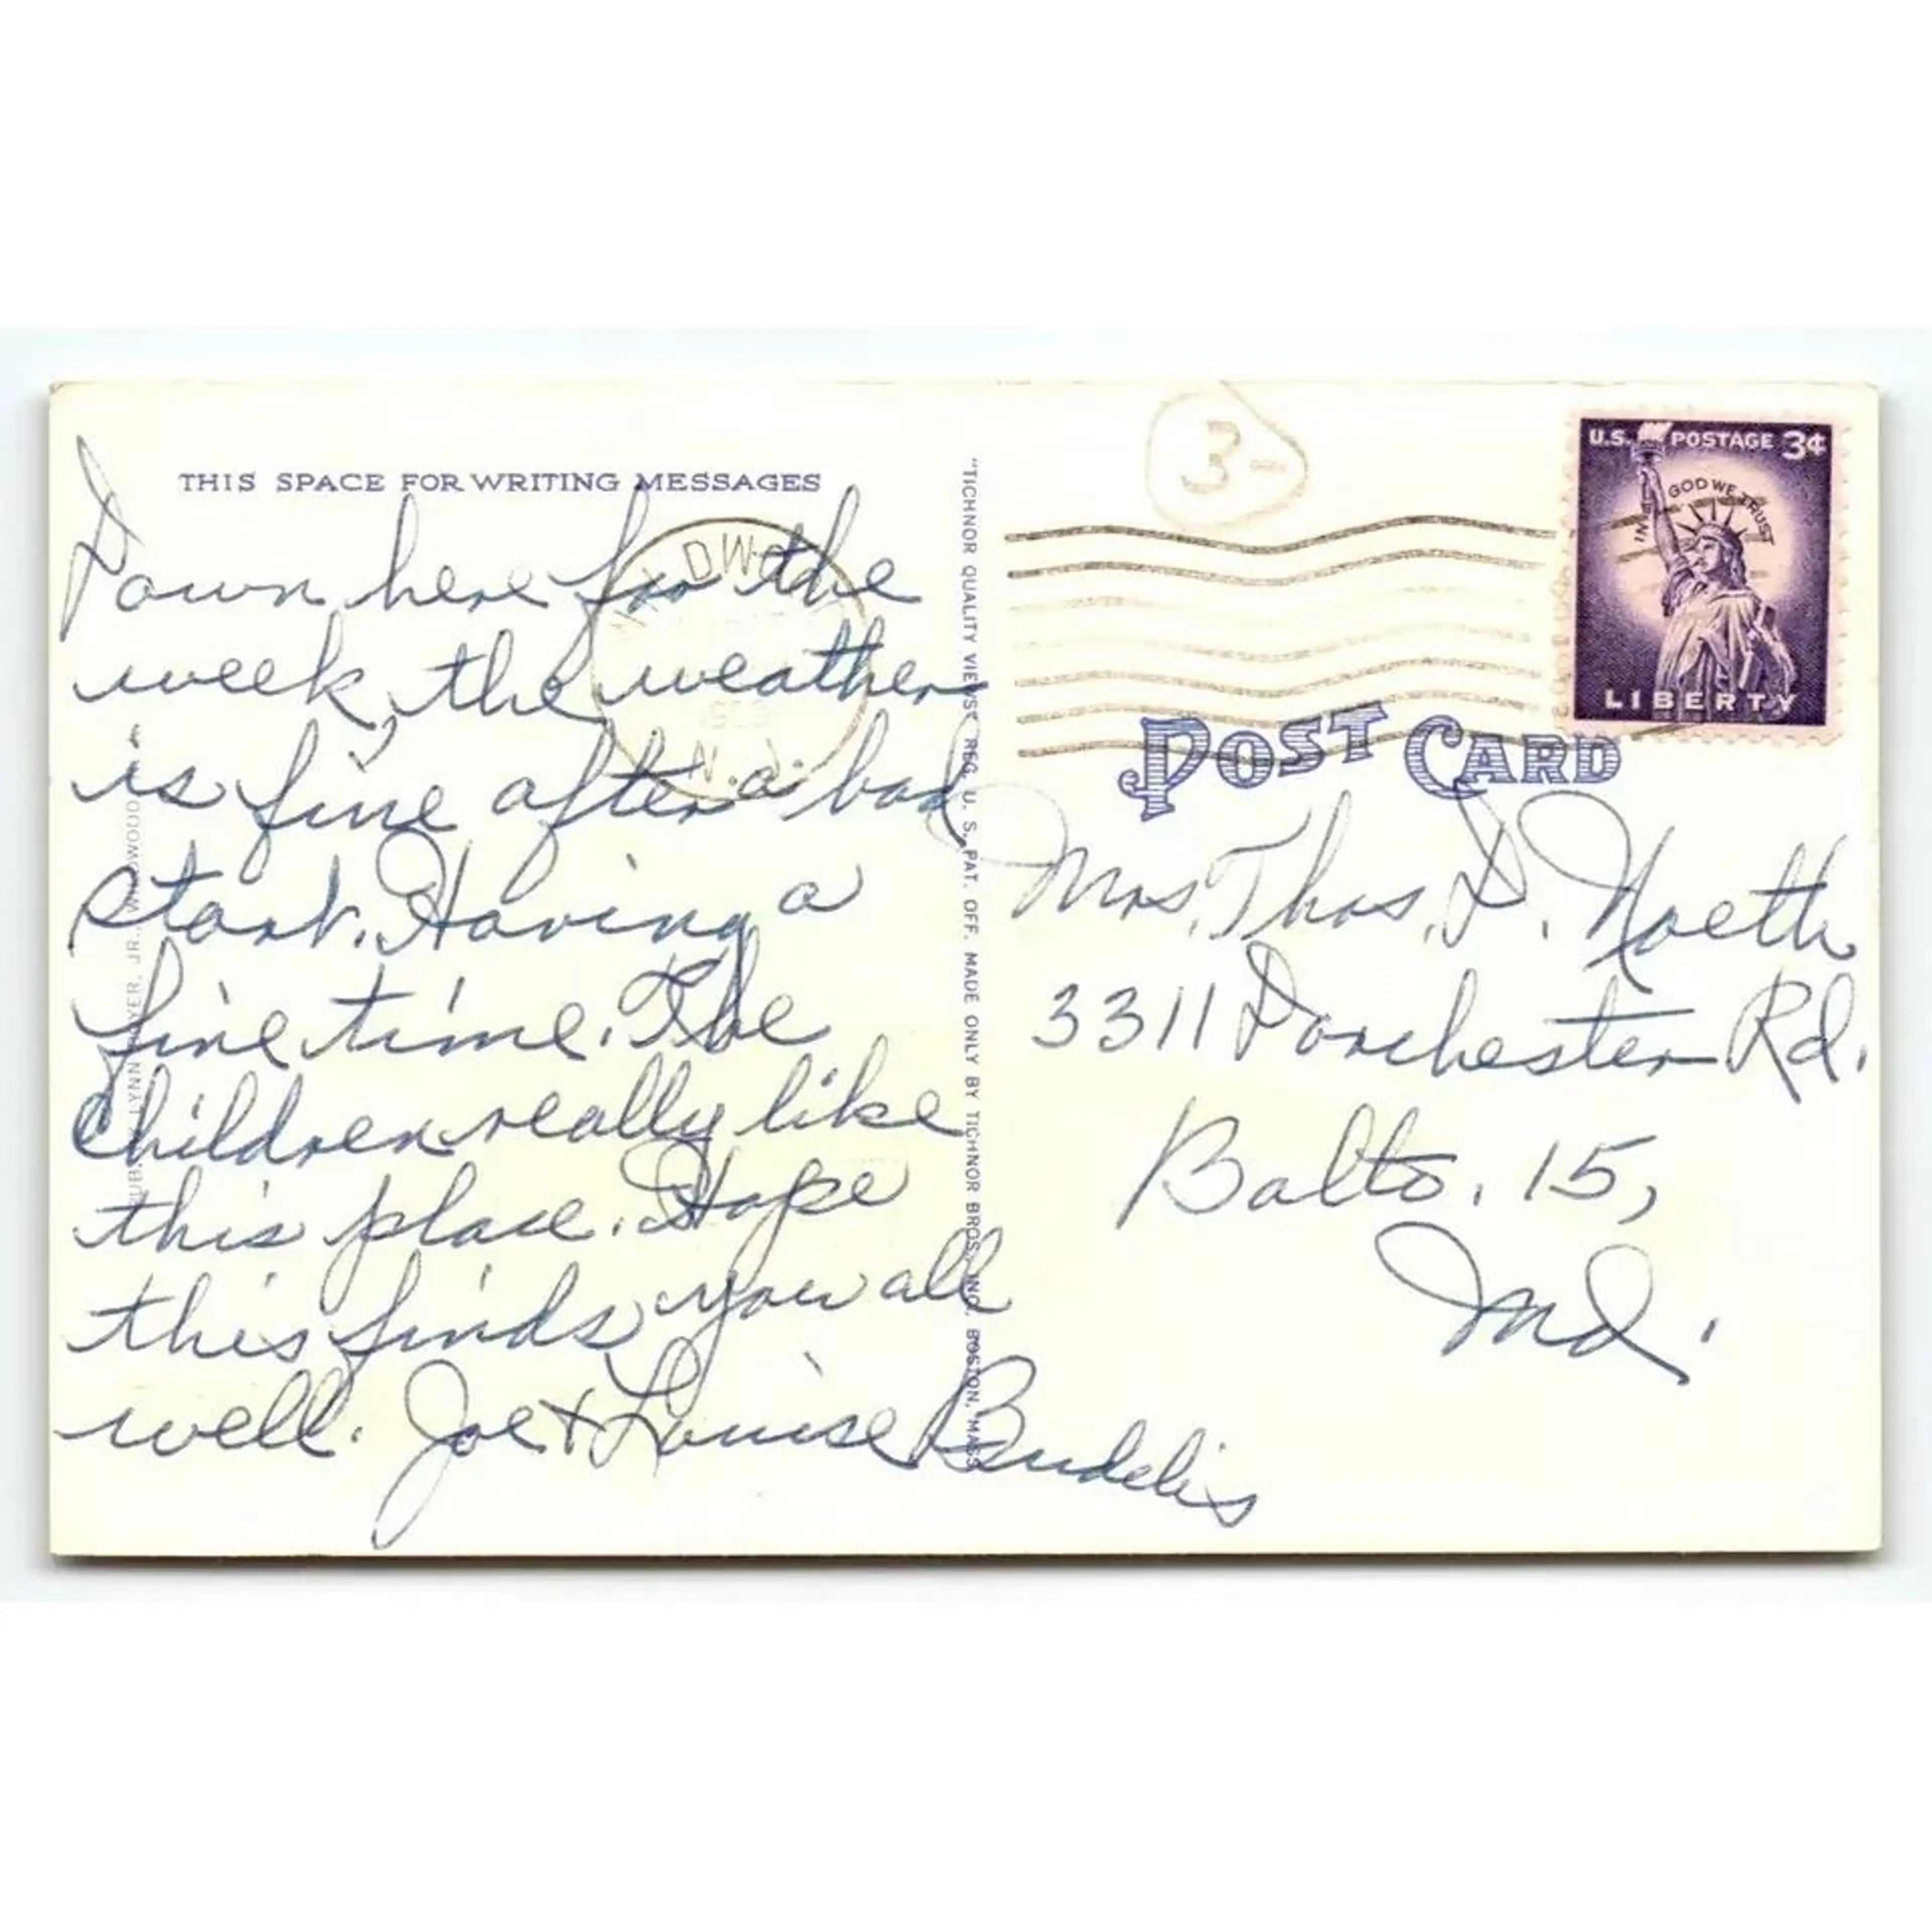 THIS SPACE FOR WRITING MESSAGES
Down here for the
week, the weather
is fine after a bad
start. Having a
fine time. The
children really like
this place. Hope
this finds you all
well. Joe & Louise Budelis
N.J.
LYNN MAYER, JR., WILDWOOD
"TICHNOR QUALITY VIEWS" REG. U. S. PAT. OFF. MADE ONLY BY TICHNOR BROS. INC., BOSTON, MASS.
3-
U.S. POSTAGE 3¢
IN GOD WE TRUST
LIBERTY
POST CARD
Mrs. Thos. D. Noeth
3311 Dorchester Rd.
Balto. 15,
Md.